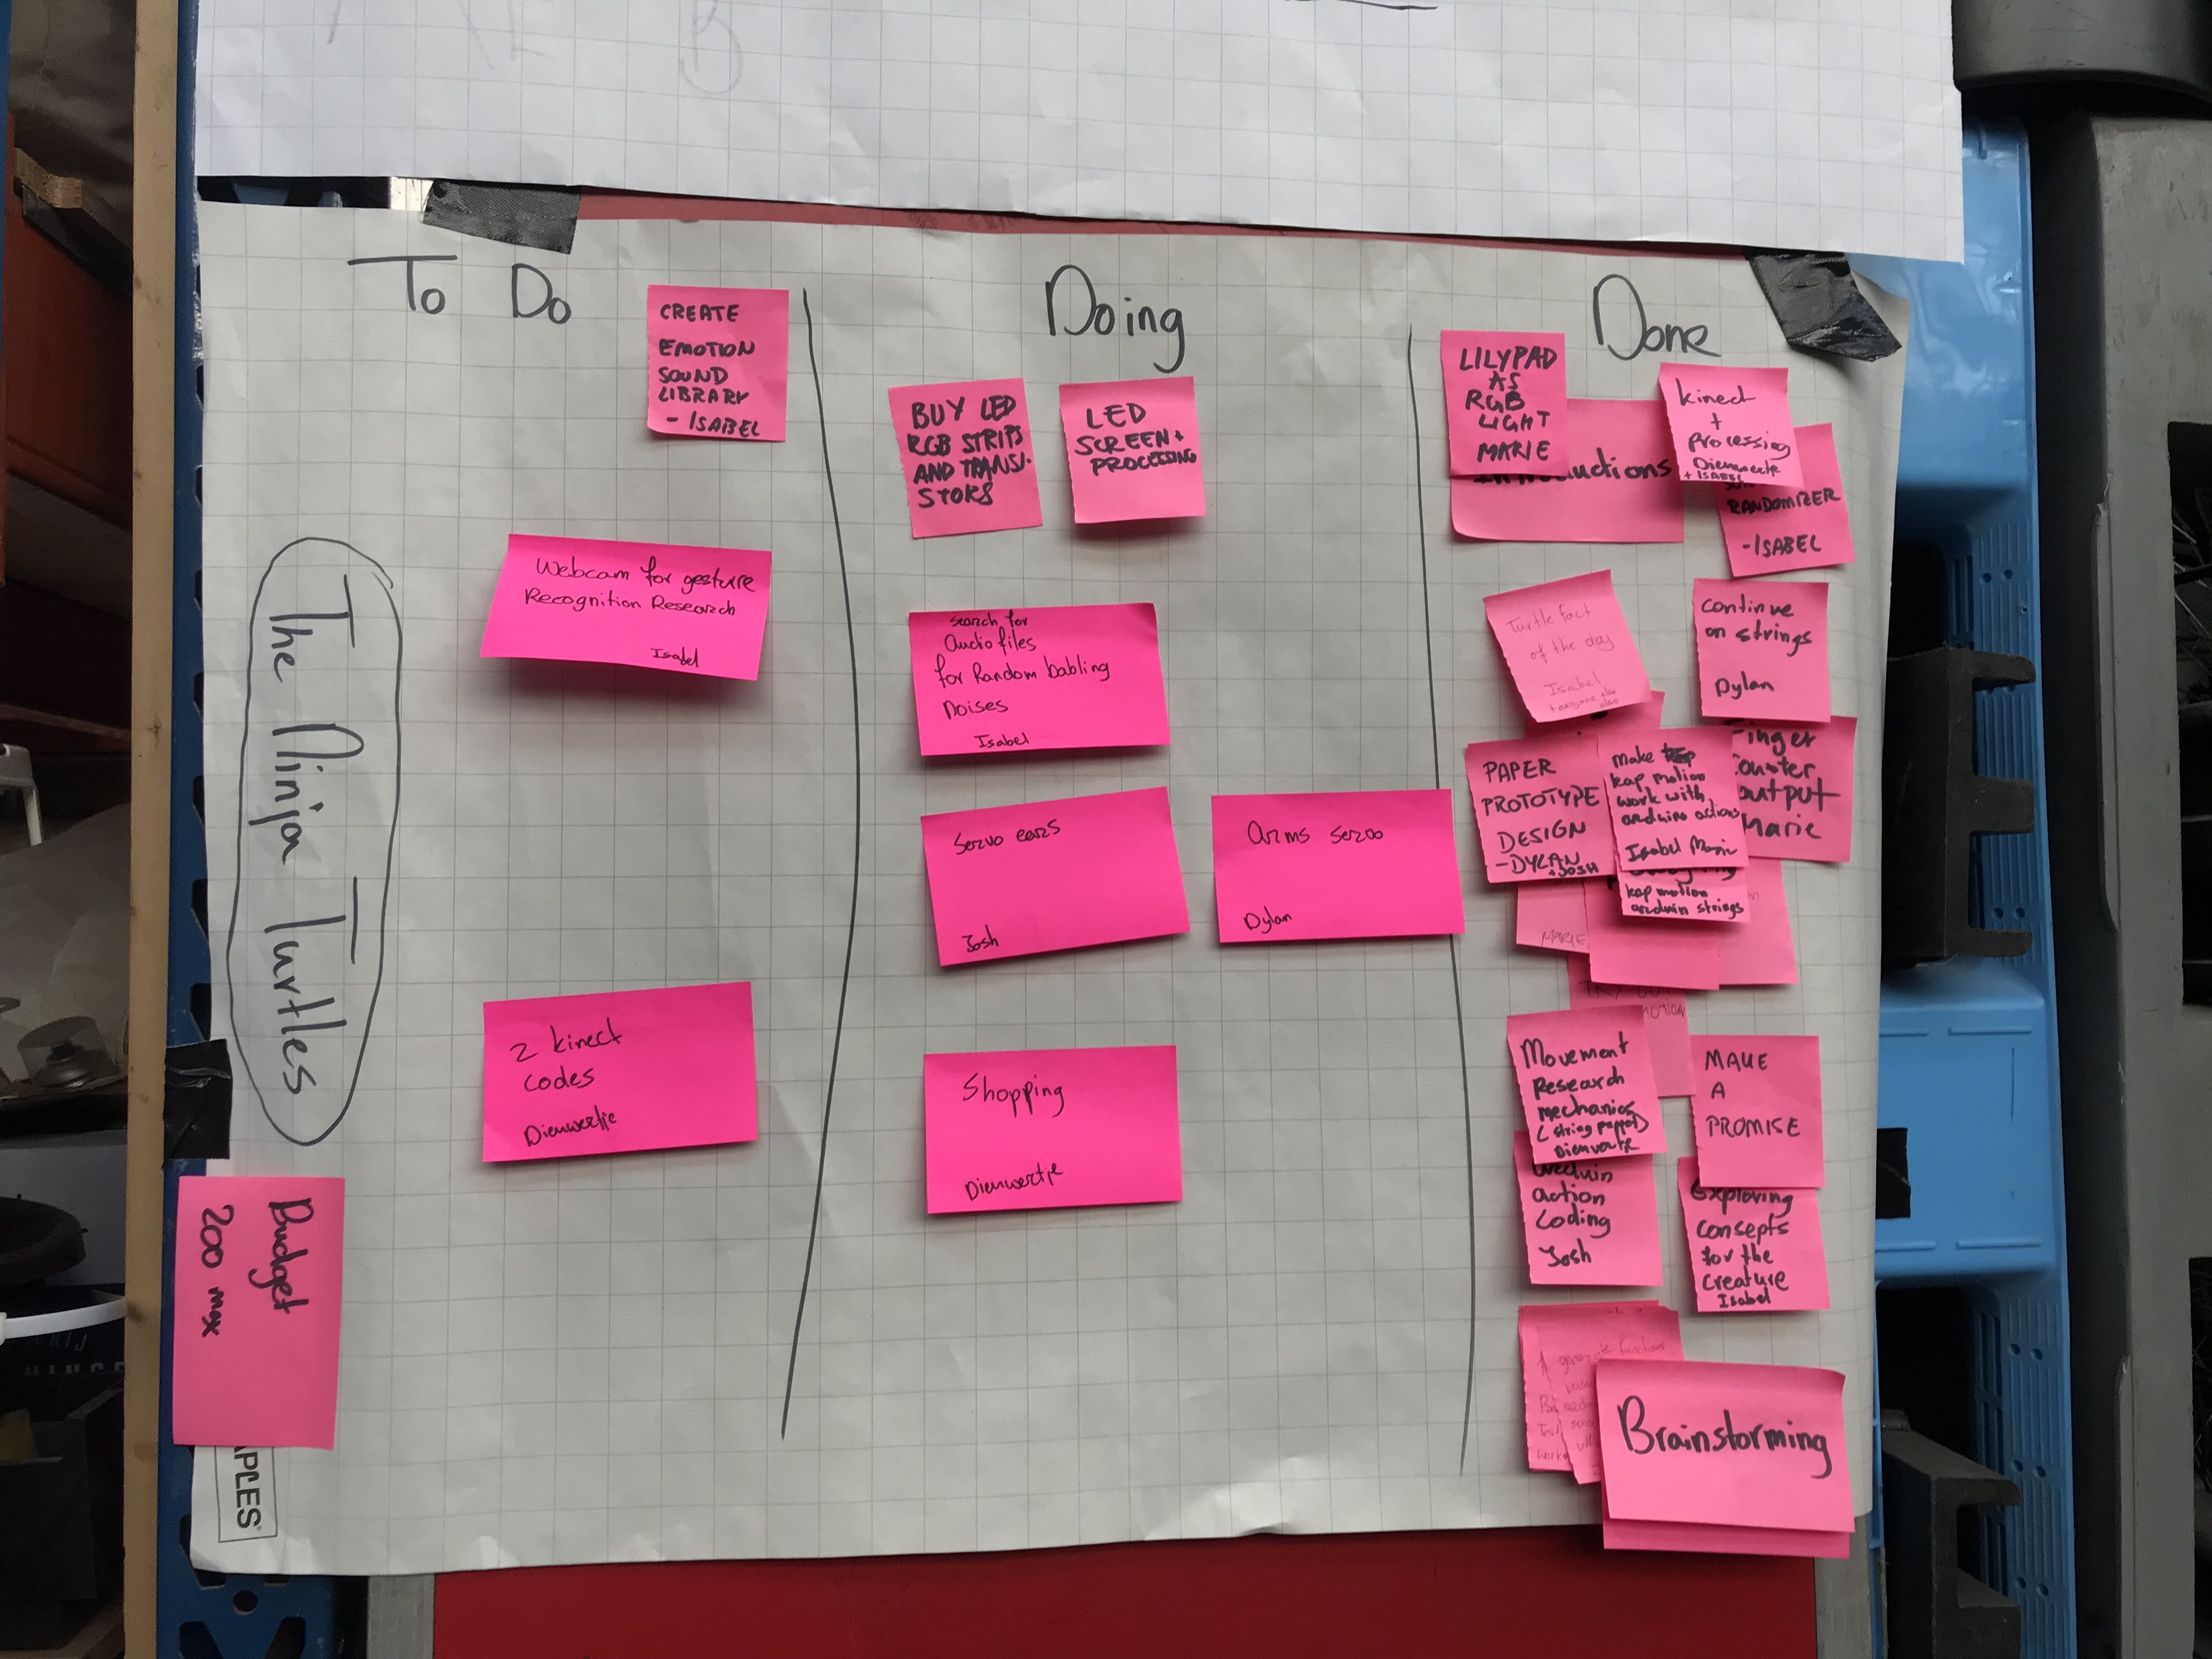 To Do
CREATE
EMOTION
SOUND
LIBRARY
- ISABEL
Webcam for gesture
Recognition Research
Isabel
2 kinect
codes
Dieuwertje
The Ninja Turtles
Budget
200 max
APLES
Doing
BUY LED
RGB STRIPS
AND TRANSI-
STORS
LED
SCREEN +
PROCESSING
search for
Audio files
for Random babling
Noises
Isabel
Servo ears
Josh
Arms servo
Dylan
Shopping
Dieuwertje
Done
LILYPAD
AS
RGB
LIGHT
MARIE
kinect
+
processing
Dieuwertje
+ ISABEL
RANDOMIZER
- ISABEL
Turtle fact
of the day
Isabel
continue
on strings
Dylan
PAPER
PROTOTYPE
DESIGN
- DYLAN
+ JOSH
make
leap motion
work with
arduino actions
Isabel Marie
output
Marie
leap motion
arduin strings
MARIE
Movement
Research
mechanics
(string puppet)
Dieuwertje
MAKE
A
PROMISE
action
Coding
Josh
Exploring
concepts
for the
creature
Isabel
generate functions
Brainstorming